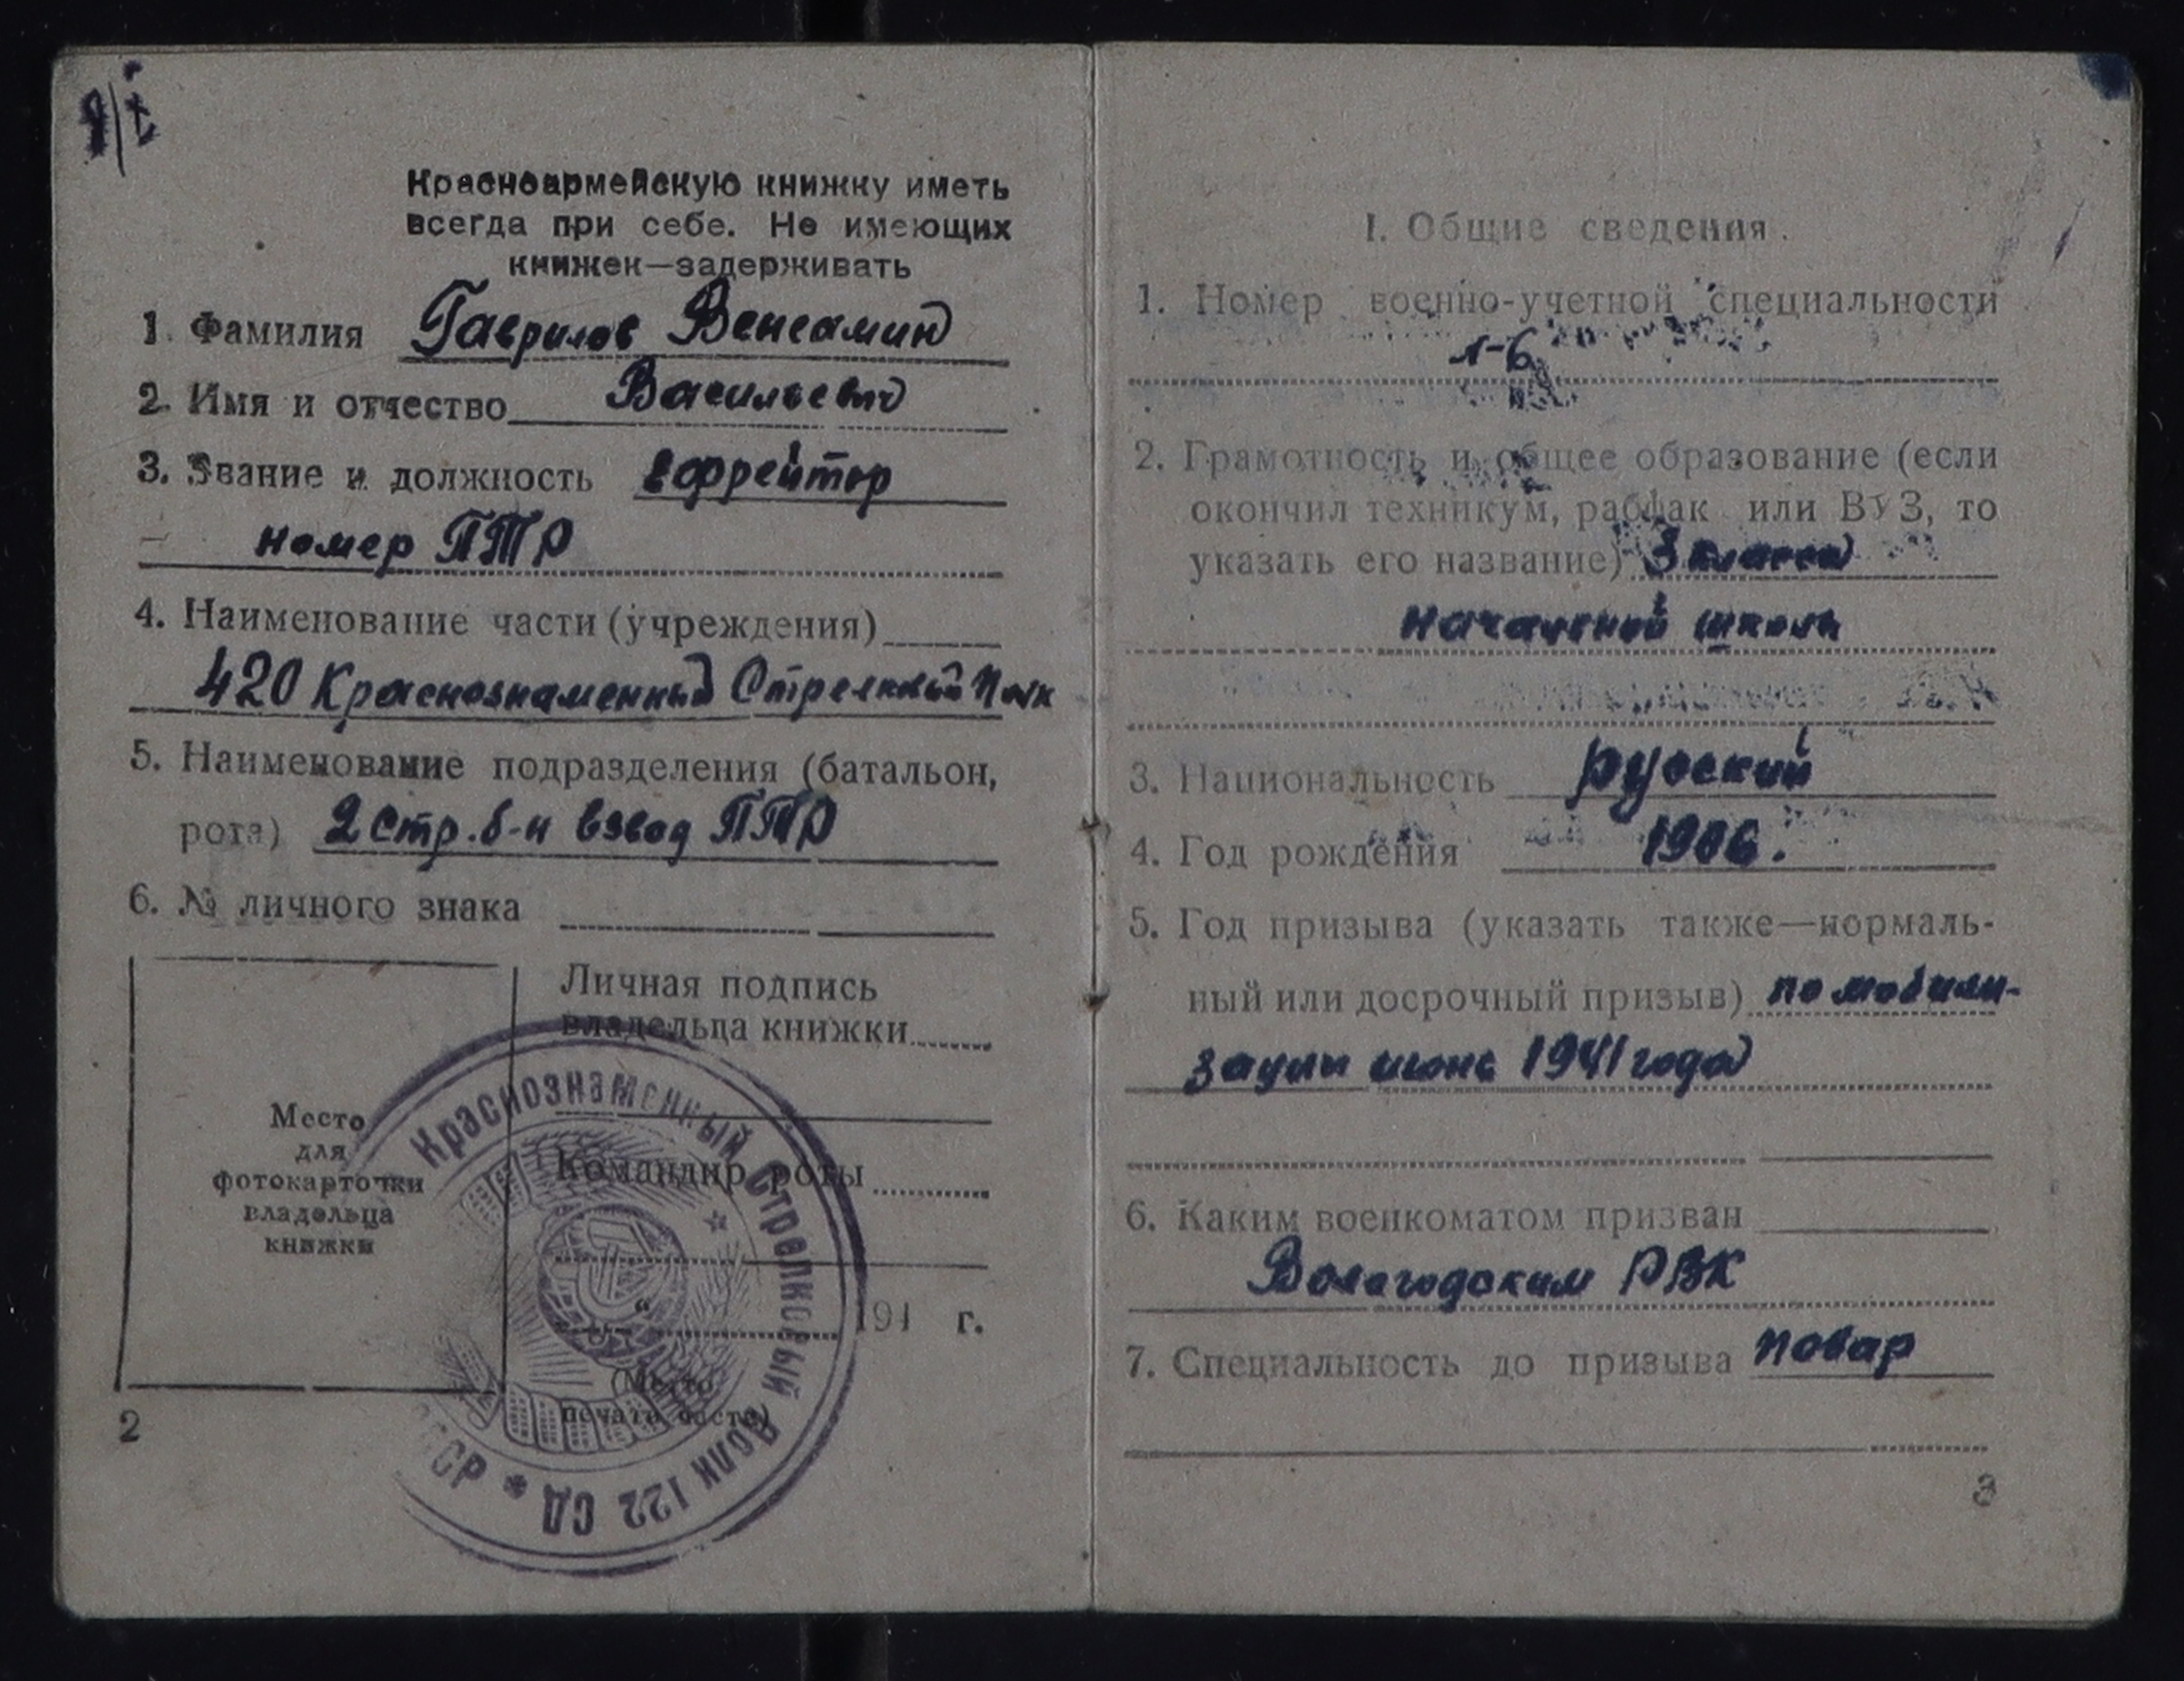 Красноармейскую книжку иметь
всегда при себе. Не имеющих
книжек—задерживать
1. Фамилия Гаврилов Вениамин
2. Имя и отчество Васильевич
3. Звание и должность ефрейтор
номер ПТР
4. Наименование части (учреждения)
420 Краснознаменный Стрелковый Полк
5. Наименование подразделения (батальон,
рота) 2 Стр. б-н взвод ПТР
6. № личного знака
Личная подпись
владельца книжки
Место
для
фотокарточки
владельца
книжки
Командир роты
194 г.
(Место
печати части)
Краснознаменный Стрелковый Полк 122 СД * СССР
2
I. Общие сведения.
1. Номер военно-учетной специальности
1-6
2. Грамотность и общее образование (если
окончил техникум, рабфак или ВУЗ, то
указать его название) 3 класса
начальной школы
3. Национальность русский
4. Год рождения 1906.
5. Год призыва (указать также—нормаль-
ный или досрочный призыв) по мобили-
зации июнь 1941 года
6. Каким военкоматом призван
Вологодским РВК
7. Специальность до призыва повар
3